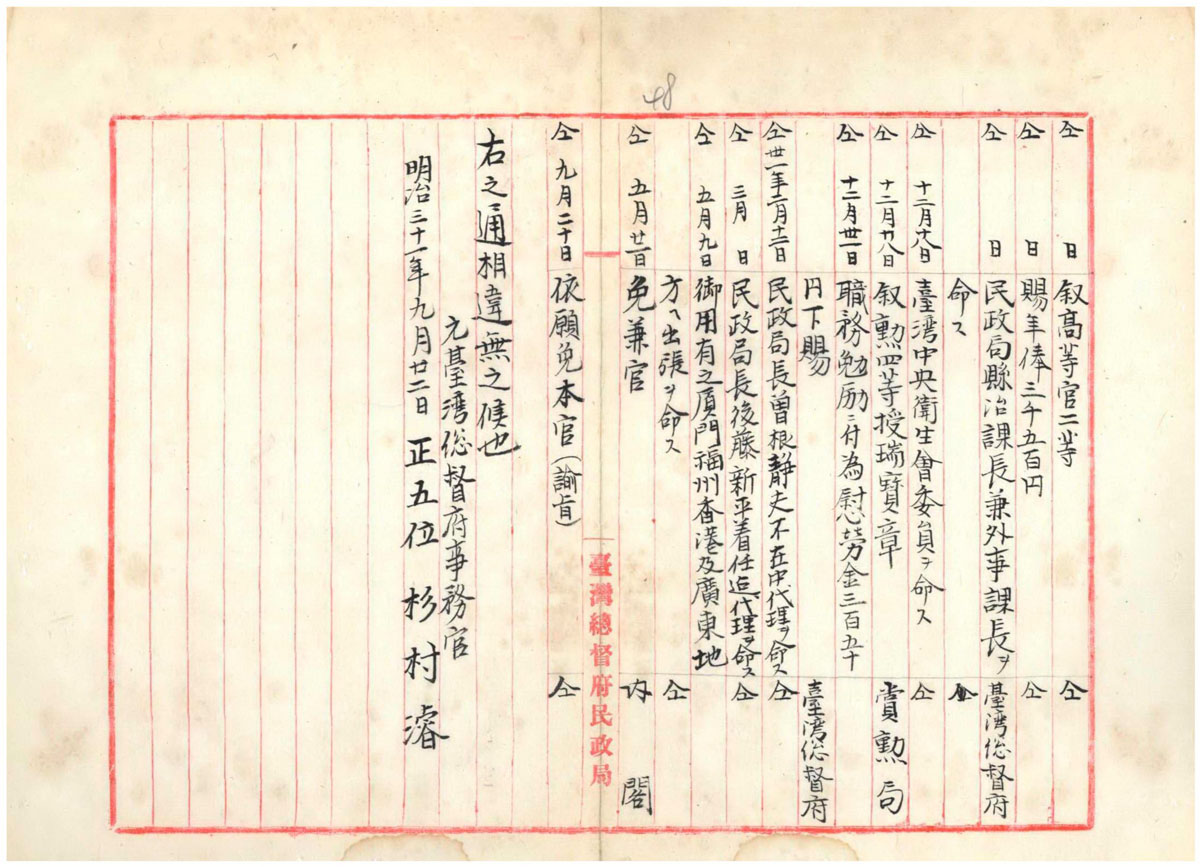 48
仝 日 叙高等官二等 仝
仝 日 賜年俸三千五百円 仝
仝 日 民政局縣治課長兼外事課長ヲ 臺湾総督府
命ス 仝
仝 十二月十八日 臺湾中央衛生會委員ヲ命ス 仝
仝 十二月廿八日 叙勲四等授瑞寶章 賞勲局
仝 十二月廿一日 職務勉励ニ付為慰労金三百五十
円下賜 臺湾総督府
仝 卅一年二月十二日 民政局長曽根静夫不在中代理ヲ命ス 仝
仝 三月 日 民政局長後藤新平着任迄代理ヲ命ス 仝
仝 五月九日 御用有之厦門福州香港及廣東地
方ヘ出張ヲ命ス 仝
仝 五月廿一日 免兼官 内閣
臺灣總督府民政局
仝 九月二十日 依願免本官(諭旨) 仝
右之通相違無之候也
元臺湾総督府事務官
明治三十一年九月廿二日 正五位 杉村濬